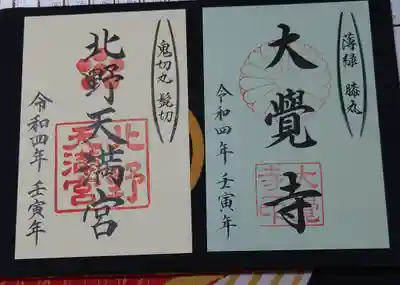 薄緑 膝丸
大覺寺
令和四年 壬寅年
大覺寺印
鬼切丸 髭切
北野天満宮
令和四年 壬寅年
北野天満宮